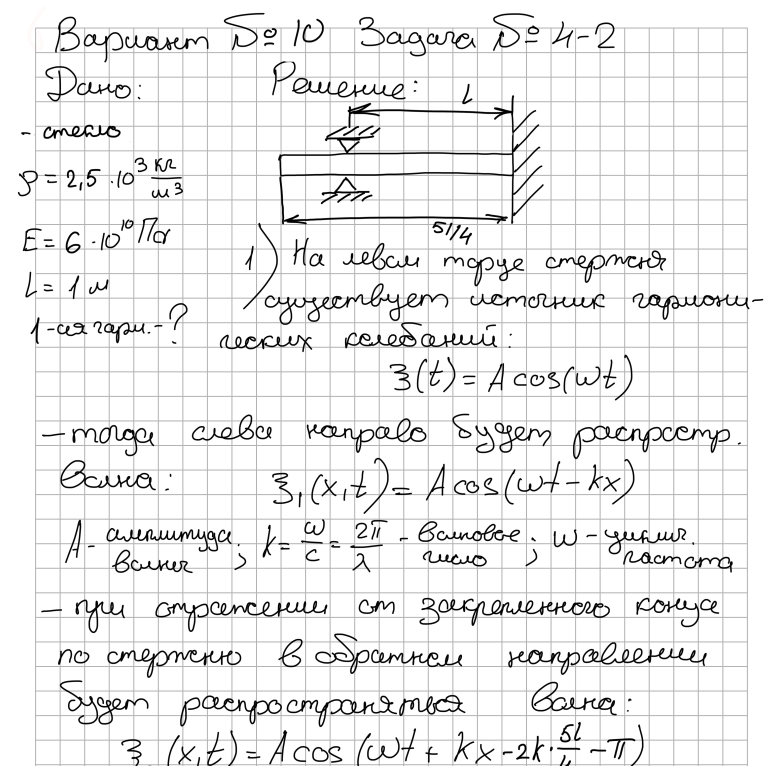 Вариант № 10 Задача № 4-2
Дано: Решение:
l
- стекло
ρ = 2,5 · 10³ кг/м³
E = 6 · 10¹⁰ Па
5l/4
L = 1 м
1-ая гарм. - ?
1) На левом торце стержня
существует источник гармони-
ческих колебаний:
ξ(t) = A cos(ωt)
- тогда слева направо будет распростр.
волна: ξ₁(x,t) = A cos(ωt - kx)
A - амплитуда волны; k = ω/c = 2π/λ - волновое число; ω - циклич. частота
- при отражении от закрепленного конца
по стержню в обратном направлении
будет распространяться волна:
ξ (x,t) = A cos (ωt + kx - 2k · 5l/4 - π)